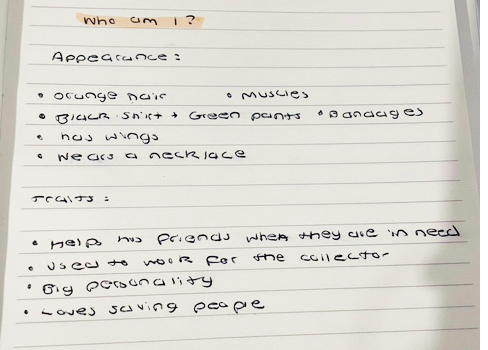 Who am I?
Appearance:
• Orange hair • Muscles
• Black shirt + Green pants • Bandages
• has wings
• Wears a necklace
Traits:
• Helps his friends when they are in need
• Used to work for the collector
• Big personality
• Loves saving people